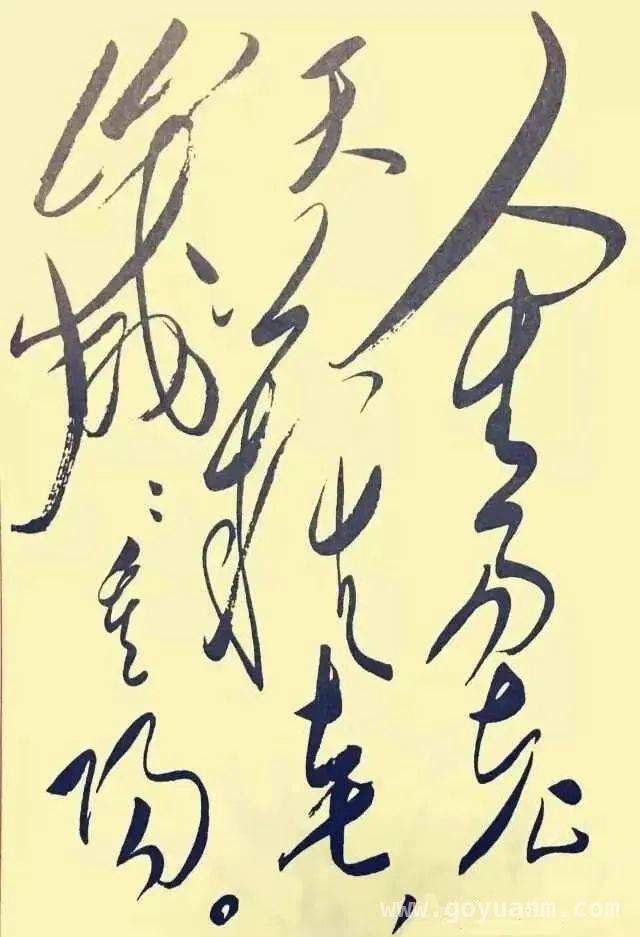 人生易老
天難老，
歲〻重陽。
www.goyuanm.com